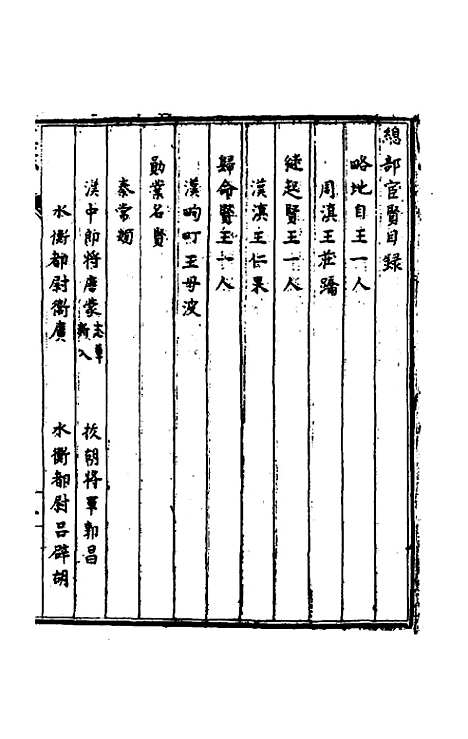 總部宦賢目録
略地自王一人
周滇王莊蹻
徒起賢王一人
漢滇王仁果
歸命賢王一人
漢呴町王毋波
勛業名賢
秦常頞
漢中郎將唐蒙志草新入 拔胡將軍郭昌
水衡都尉衛廣 水衡都尉吕辟胡